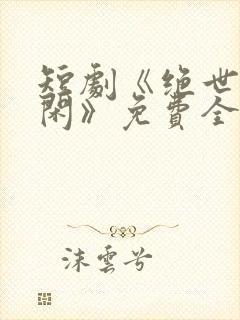 短劇《绝世
闲》免費全
沫雲兮